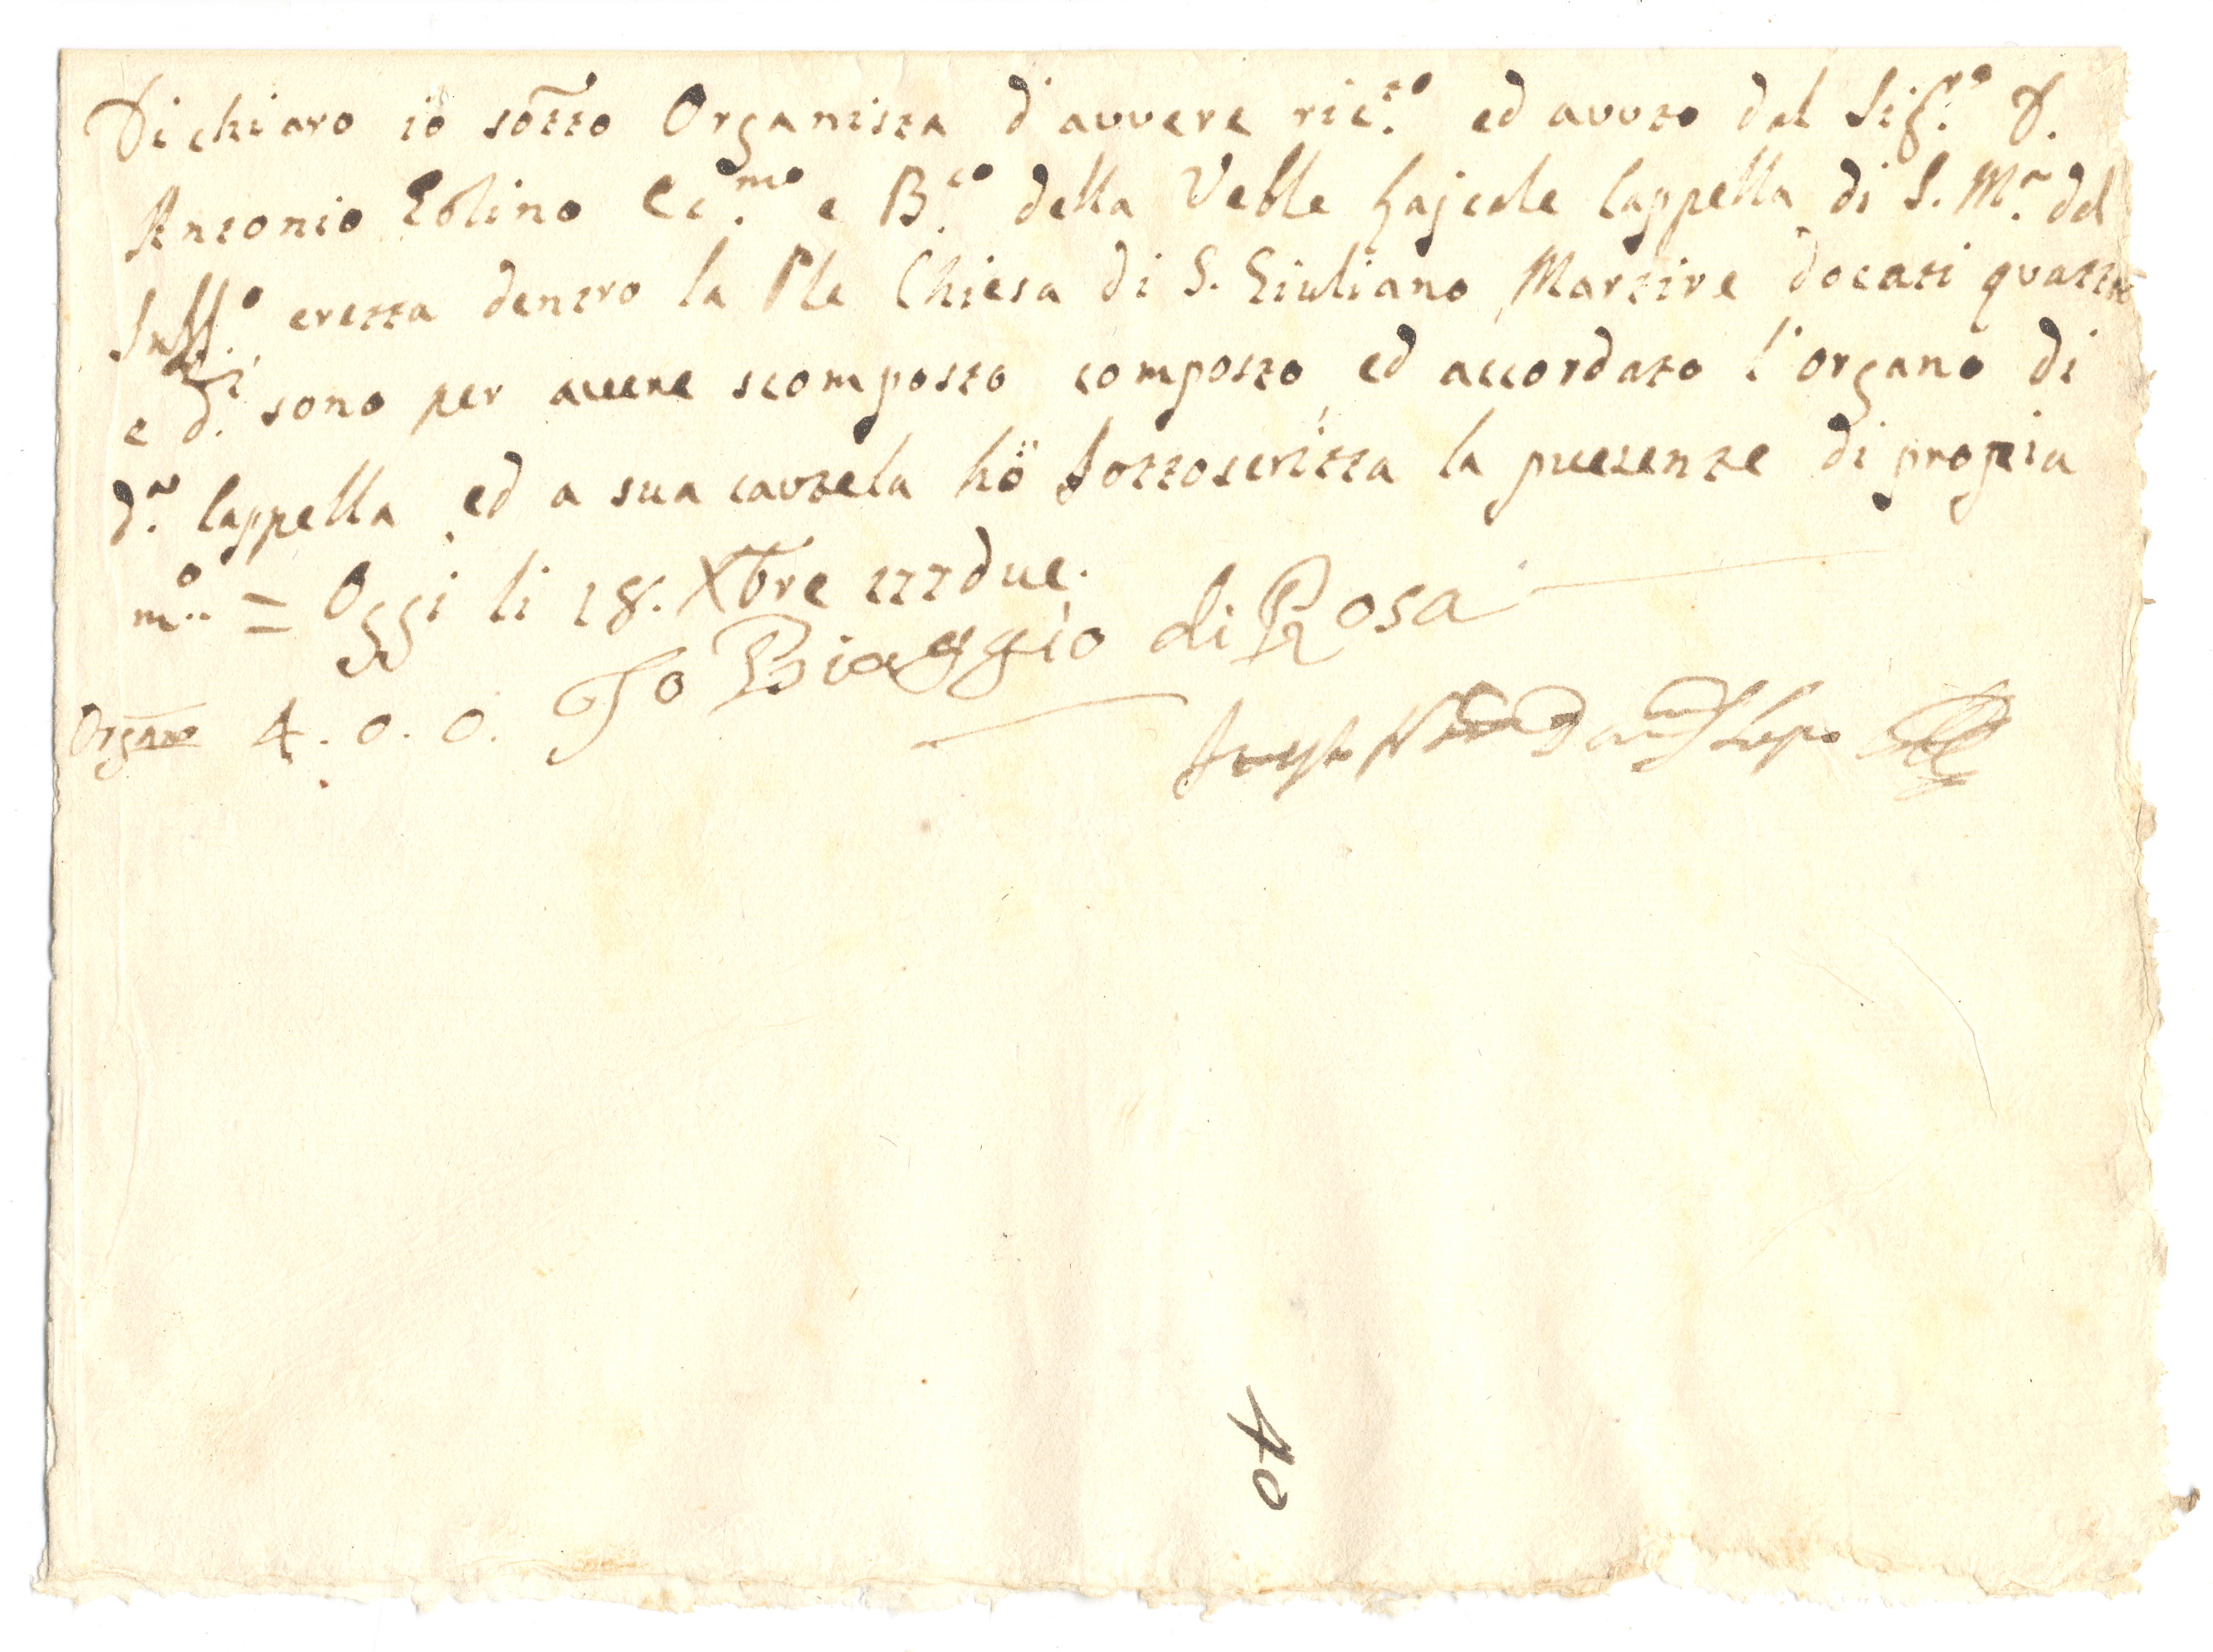 Dichiaro io sotto Organista d'avvere ric.to ed avuto dal Sig.ro D.
Antonio Eblino Ec.mo e B.co della Veble Lajcale Cappella di S. M.a del
Suff.o eretta dentro la Ple Chiesa di S. Giuliano Martire docati quattro
e d.ti sono per avere scomposto composto ed accordato l'organo di
d.a Cappella ed a sua cautela hò sottoscritta la presente di propia
m.o = Oggi li 18. Xbre 777due.
Io Biaggio di Rosa
Organo 4. 0. 0.
40